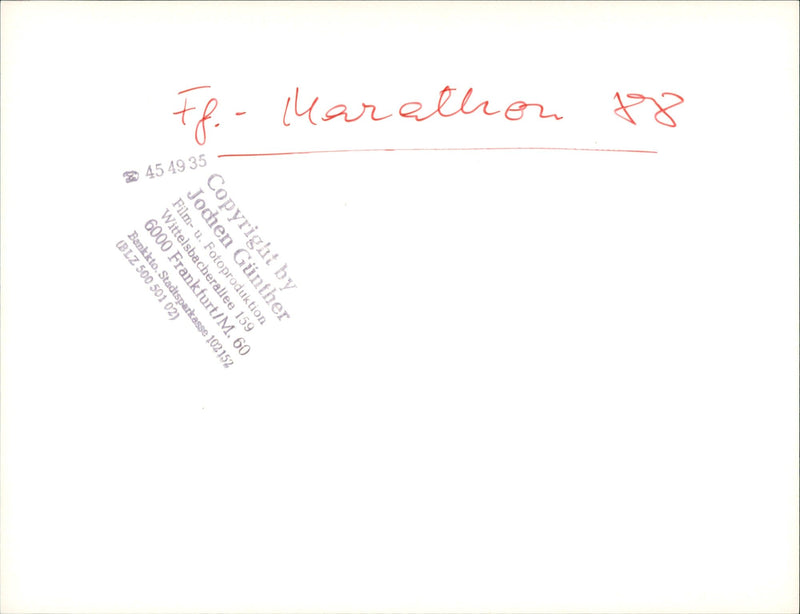 Ff.- Marathon 88
☎ 45 49 35
Copyright by
Jochen Günther
Film- u. Fotoproduktion
Wittelsbacherallee 159
6000 Frankfurt/M. 60
Bankkto. Stadtsparkasse 102152
(BLZ 500 501 02)